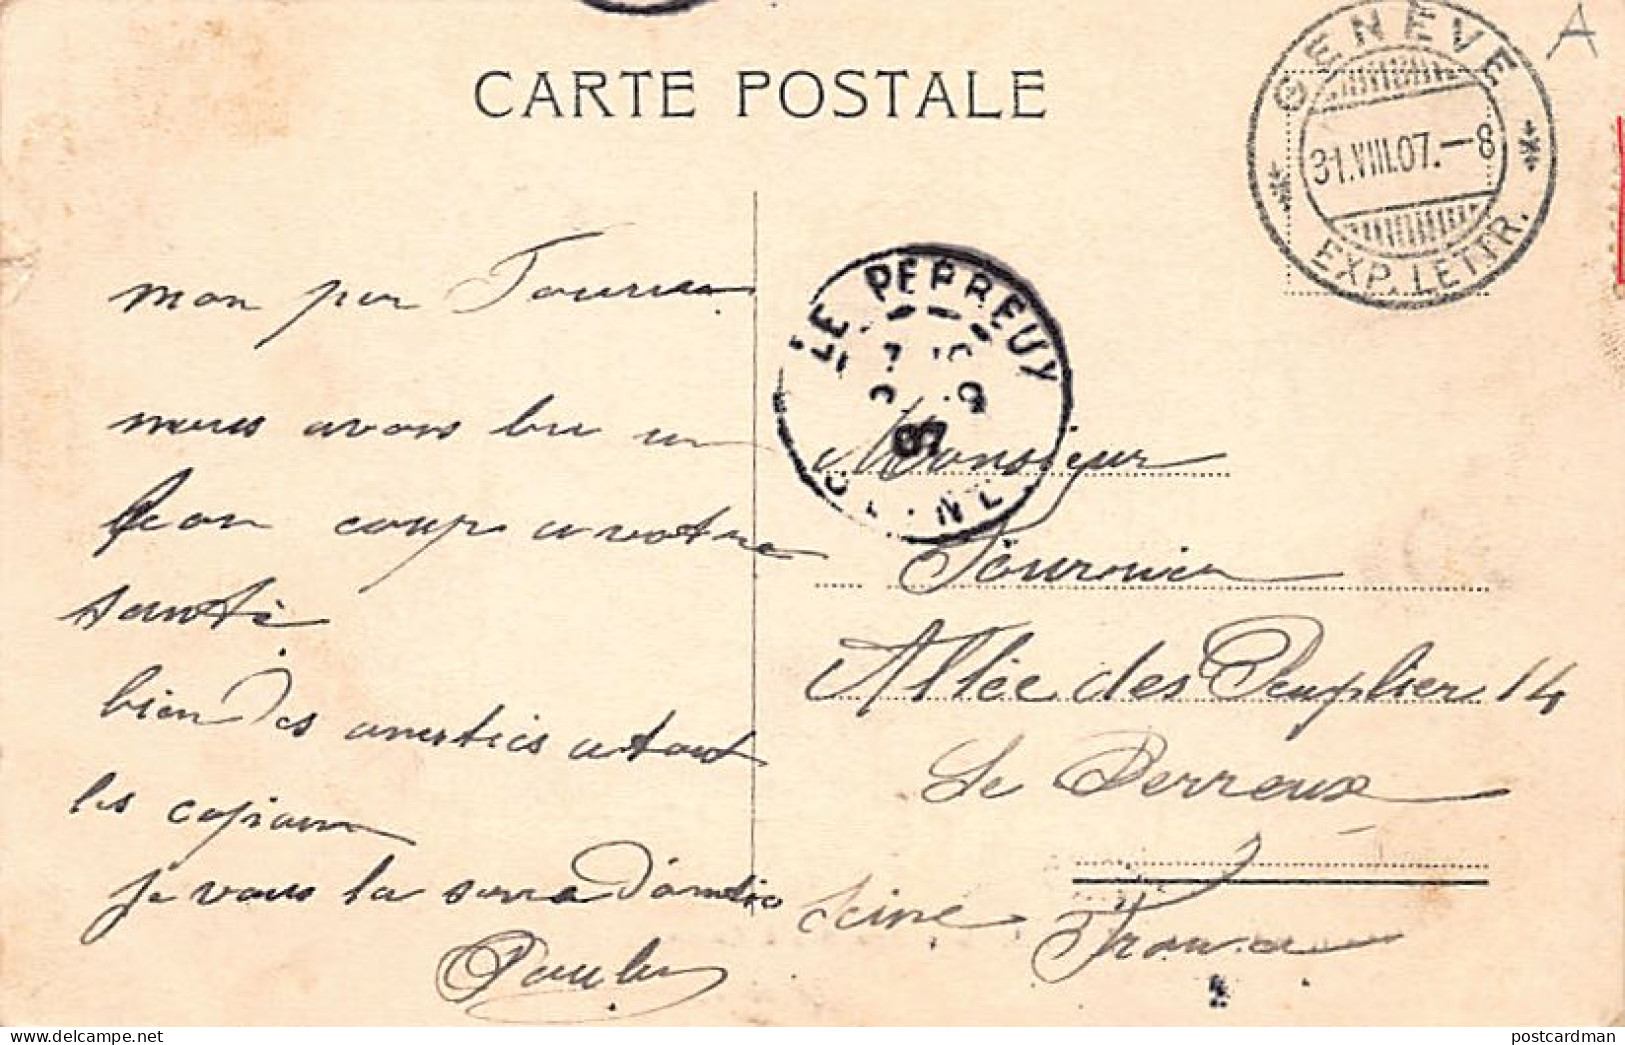 CARTE POSTALE
GENÈVE
31.VIII.07.-8
EXP. LETTR.
A
LE PERREUX
07
mon per
nous avons bu un
bon coup a votre
santé
bien des amitiés a tout
les copiam
je vous la serre d'amitié
Monsieur
Fournier
Allée des Peuplier 14
Le Perreux
Seine France
delcampe.net
postcardman